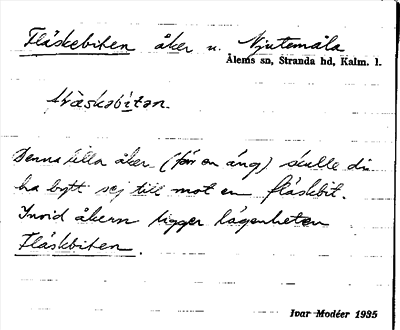 Fläskebiten åker u. Njutemåla
Ålems sn, Stranda hd, Kalm. l.
Denna lilla åker (förr en äng) skulle di
ha bytt sej till mot en fläskbit.
Invid åkern ligger lägenheten
Fläskbiten.
Ivar Modéer 1935